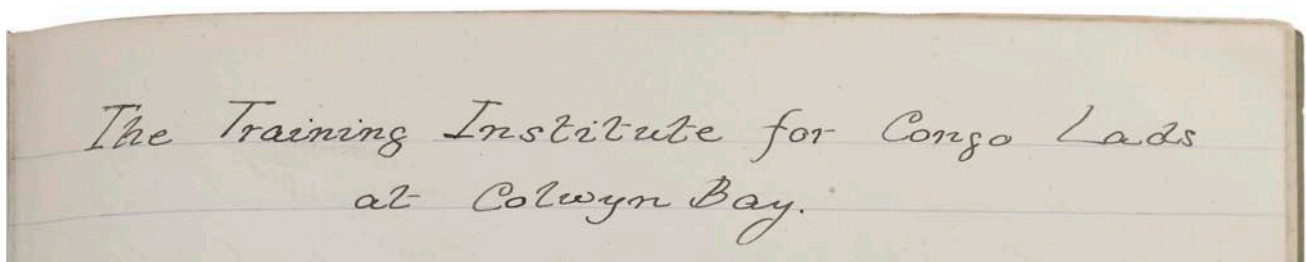 The Training Institute for Congo Lads
at Colwyn Bay.